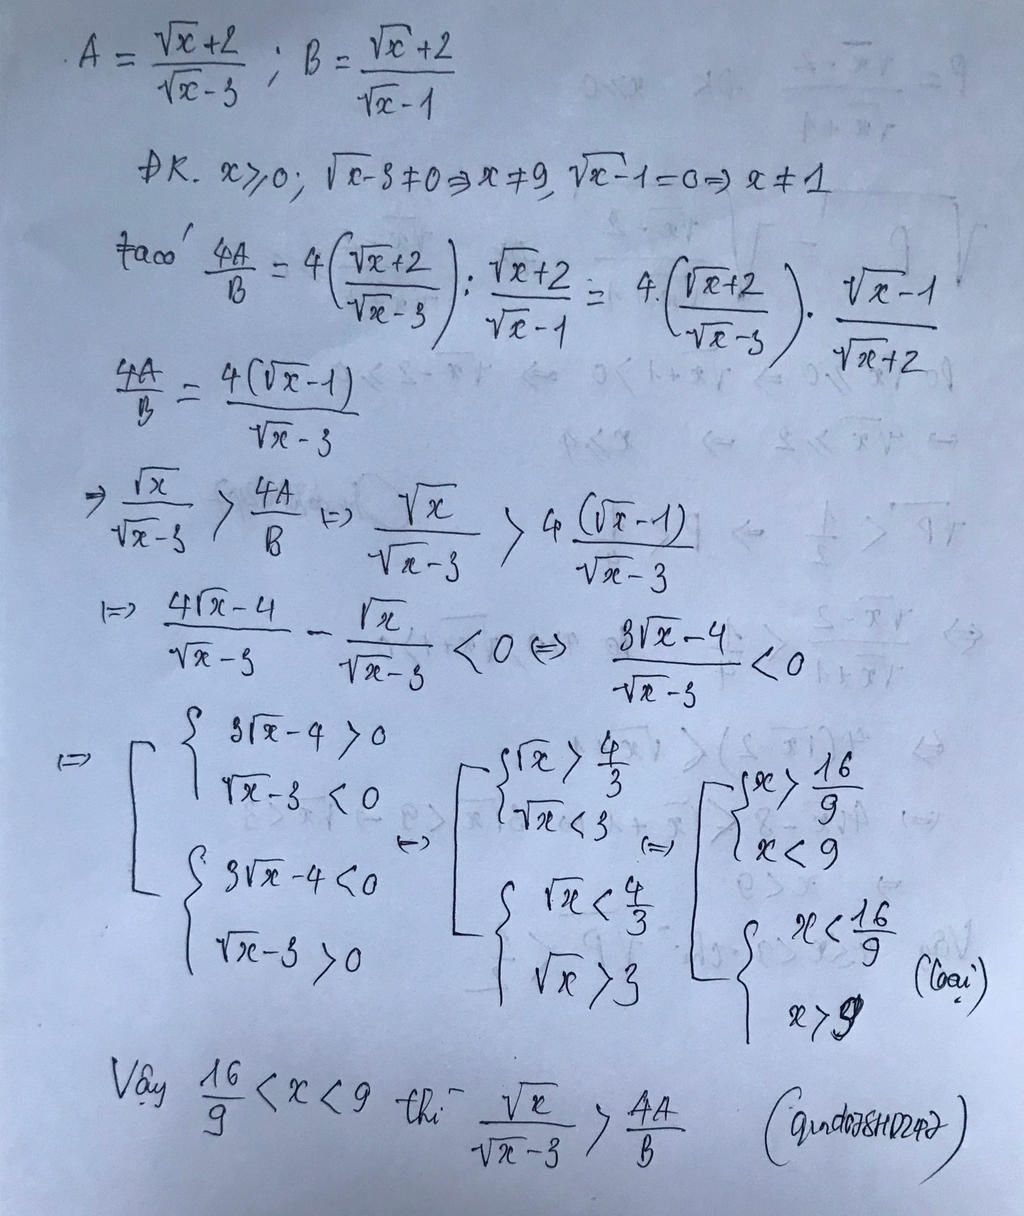 A = (√x+2)/(√x-3) ; B = (√x+2)/(√x-1)
ĐK. x ≥ 0; √x-3 ≠ 0 ⇒ x ≠ 9, √x-1 = 0 ⇒ x ≠ 1
ta có 4A/B = 4((√x+2)/(√x-3)) : (√x+2)/(√x-1) = 4.((√x+2)/(√x-3)) . (√x-1)/(√x+2)
4A/B = 4(√x-1)/(√x-3)
⇒ √x/(√x-3) > 4A/B ⇔ √x/(√x-3) > 4(√x-1)/(√x-3)
⇔ (4√x-4)/(√x-3) - √x/(√x-3) < 0 ⇔ (3√x-4)/(√x-3) < 0
⇔ [ { 3√x-4 > 0 ; √x-3 < 0 } { 3√x-4 < 0 ; √x-3 > 0 } ⇔ [ { √x > 4/3 ; √x < 3 } { √x < 4/3 ; √x > 3 } ⇔ [ { x > 16/9 ; x < 9 } { x < 16/9 ; x > 9 } (loại)
Vậy 16/9 < x < 9 thì √x/(√x-3) > 4A/B